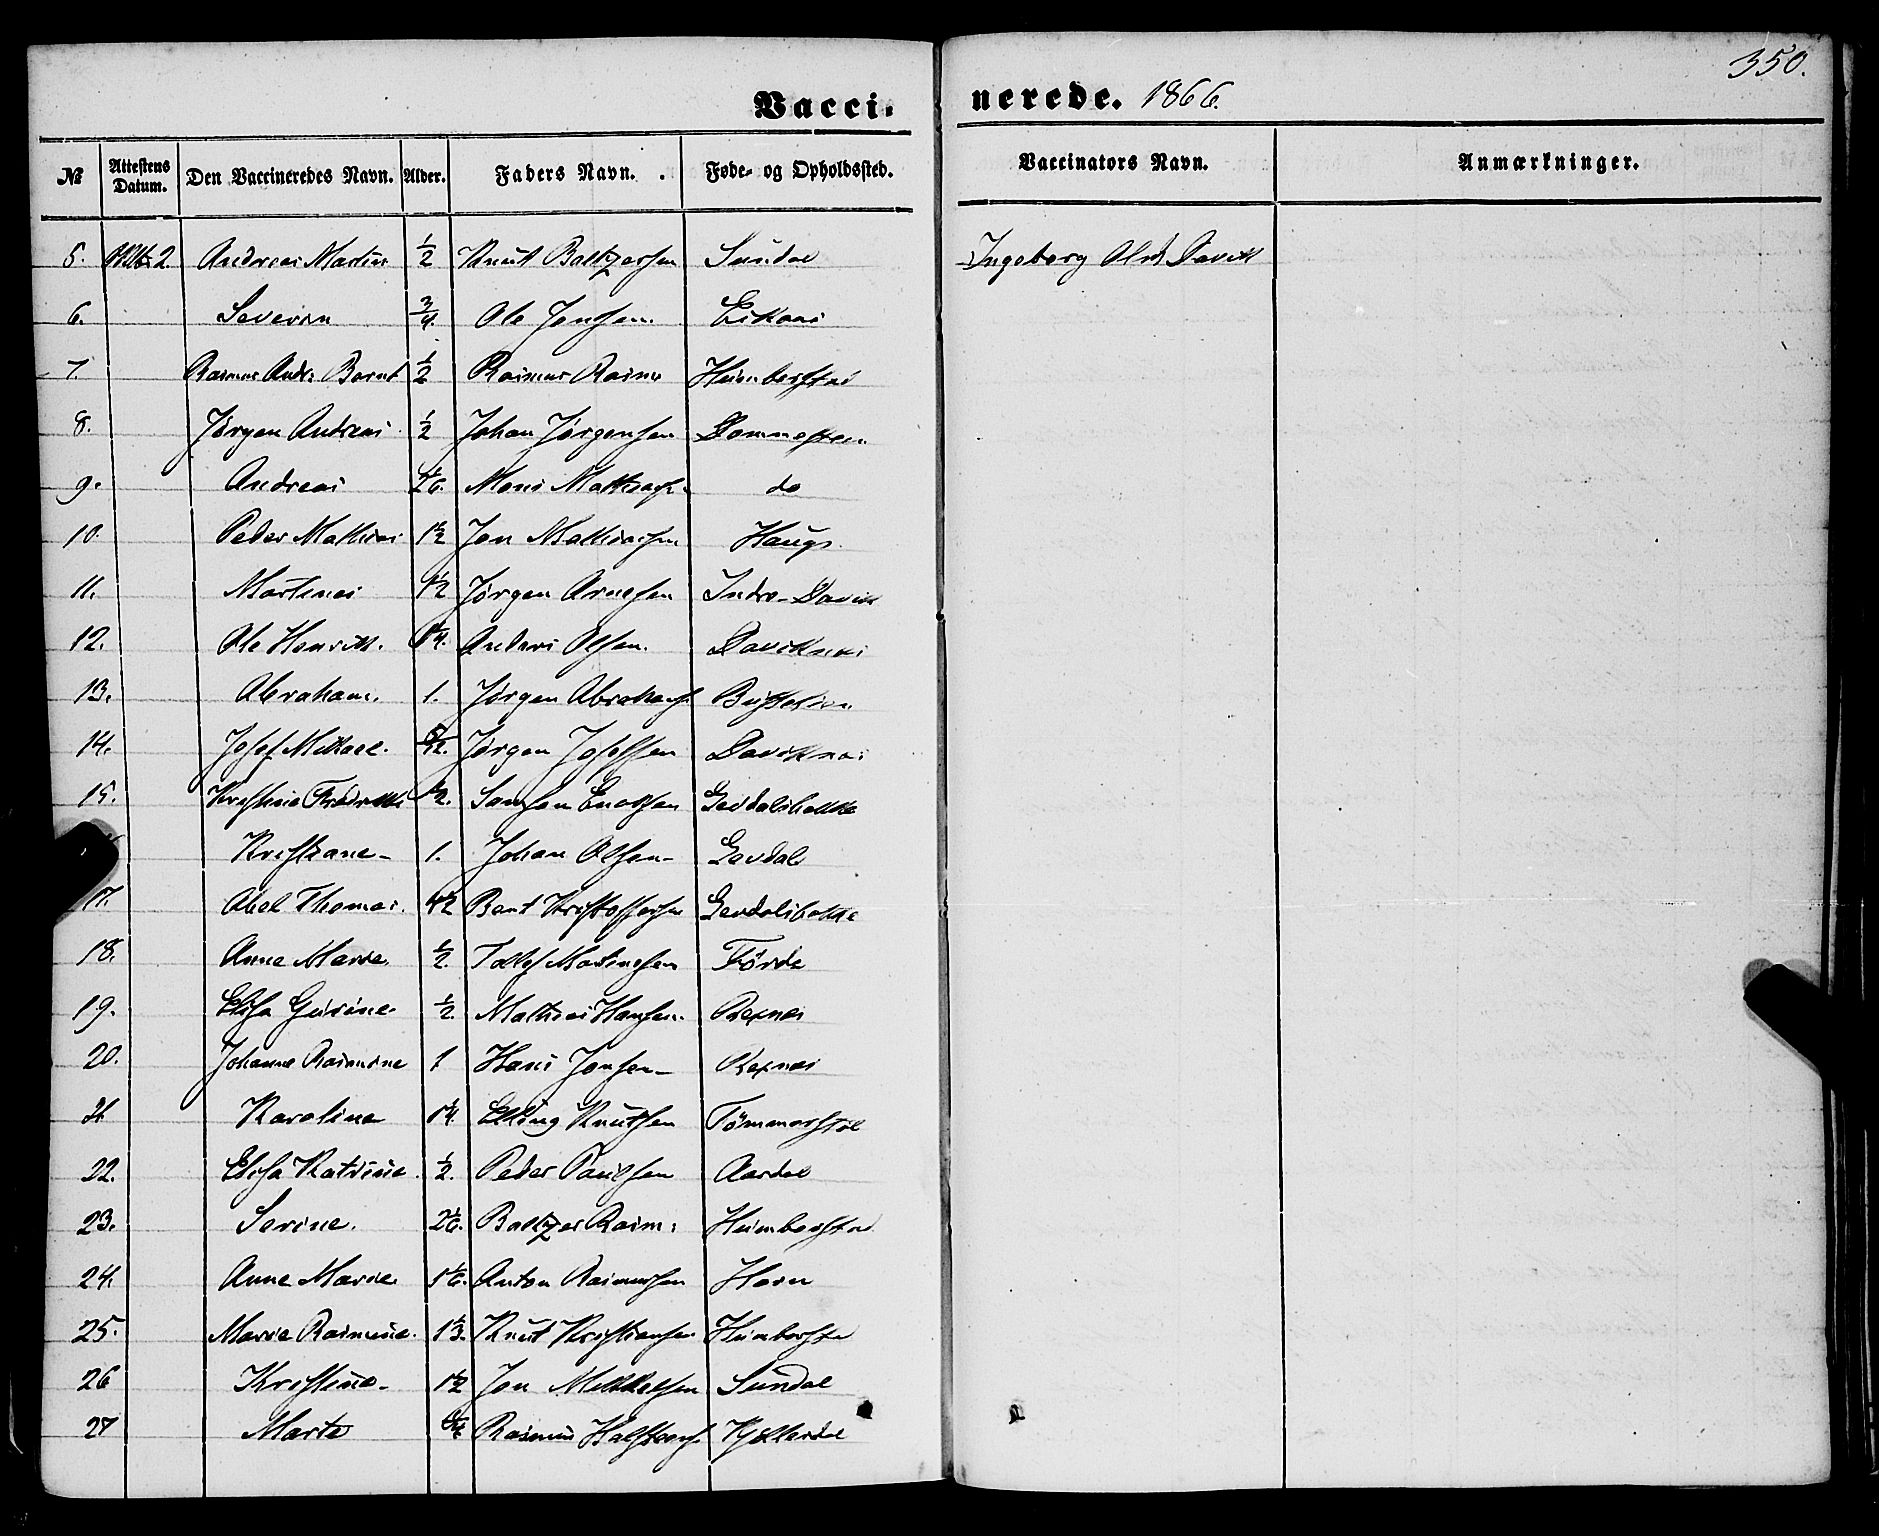 350.
Vacci-
nerede. 1866.
№ Attestens Datum. Den Vaccineredes Navn. Alder. Faders Navn. Føde- og Opholdssted. Vaccinators Navn. Anmærkninger.
5. 2. Andreas Martin 1/2 Knut Baltzersen Sundal Ingeborg Davik
6. Severin 3/4 Ole Jensen
7. Rasmus Andr: Bernt 1/2 Rasmus Rasm:
8. Jørgen Andreas 1/2 Johan Jørgensen Domnesten
9. Andreas Mons do
10. Peder Mathias 1 1/2 Jon Mathiassen Haugs
11. Martinus 1 1/2 Jørgen Arnesen Indre-Davik
12. Ole Henrik. Anders Olsen. Daviknes
13. Abraham. 1. Jørgen Abrahams.
14. Josef Mikael. Jørgen Josefsen Daviknes
15. 1/2. Enoksen Gevdalsbakke
Kristiane 1. Johan Olsen Gevdal
17. Abel Thomas. Bent Kristoffersen Gevdalsbakke
18. Anne Marie 1/2. Tollef Martinesen Førde
19. Elisa Gurine 1/2. Mathias Hansen. Rexnes
20. Johanne Rasmine 1 Hans Jonsen Rexnes
21 Karoline 1 1/4. Elling Knutsen Tömmerstøl
22. Elisa Katrine 1/2. Peder Paulsen Aardal
23. Serine. 2 1/6. Baltzer Rasm:
24. Anne Marie 1 1/6. Anton Rasmussen Horn
25. Marie Rasmine. 1 1/3. Knut Kristiansen
26 Kristine 1 1/2 Jon Mikkelsen Sundal
27 Marte Rasmus